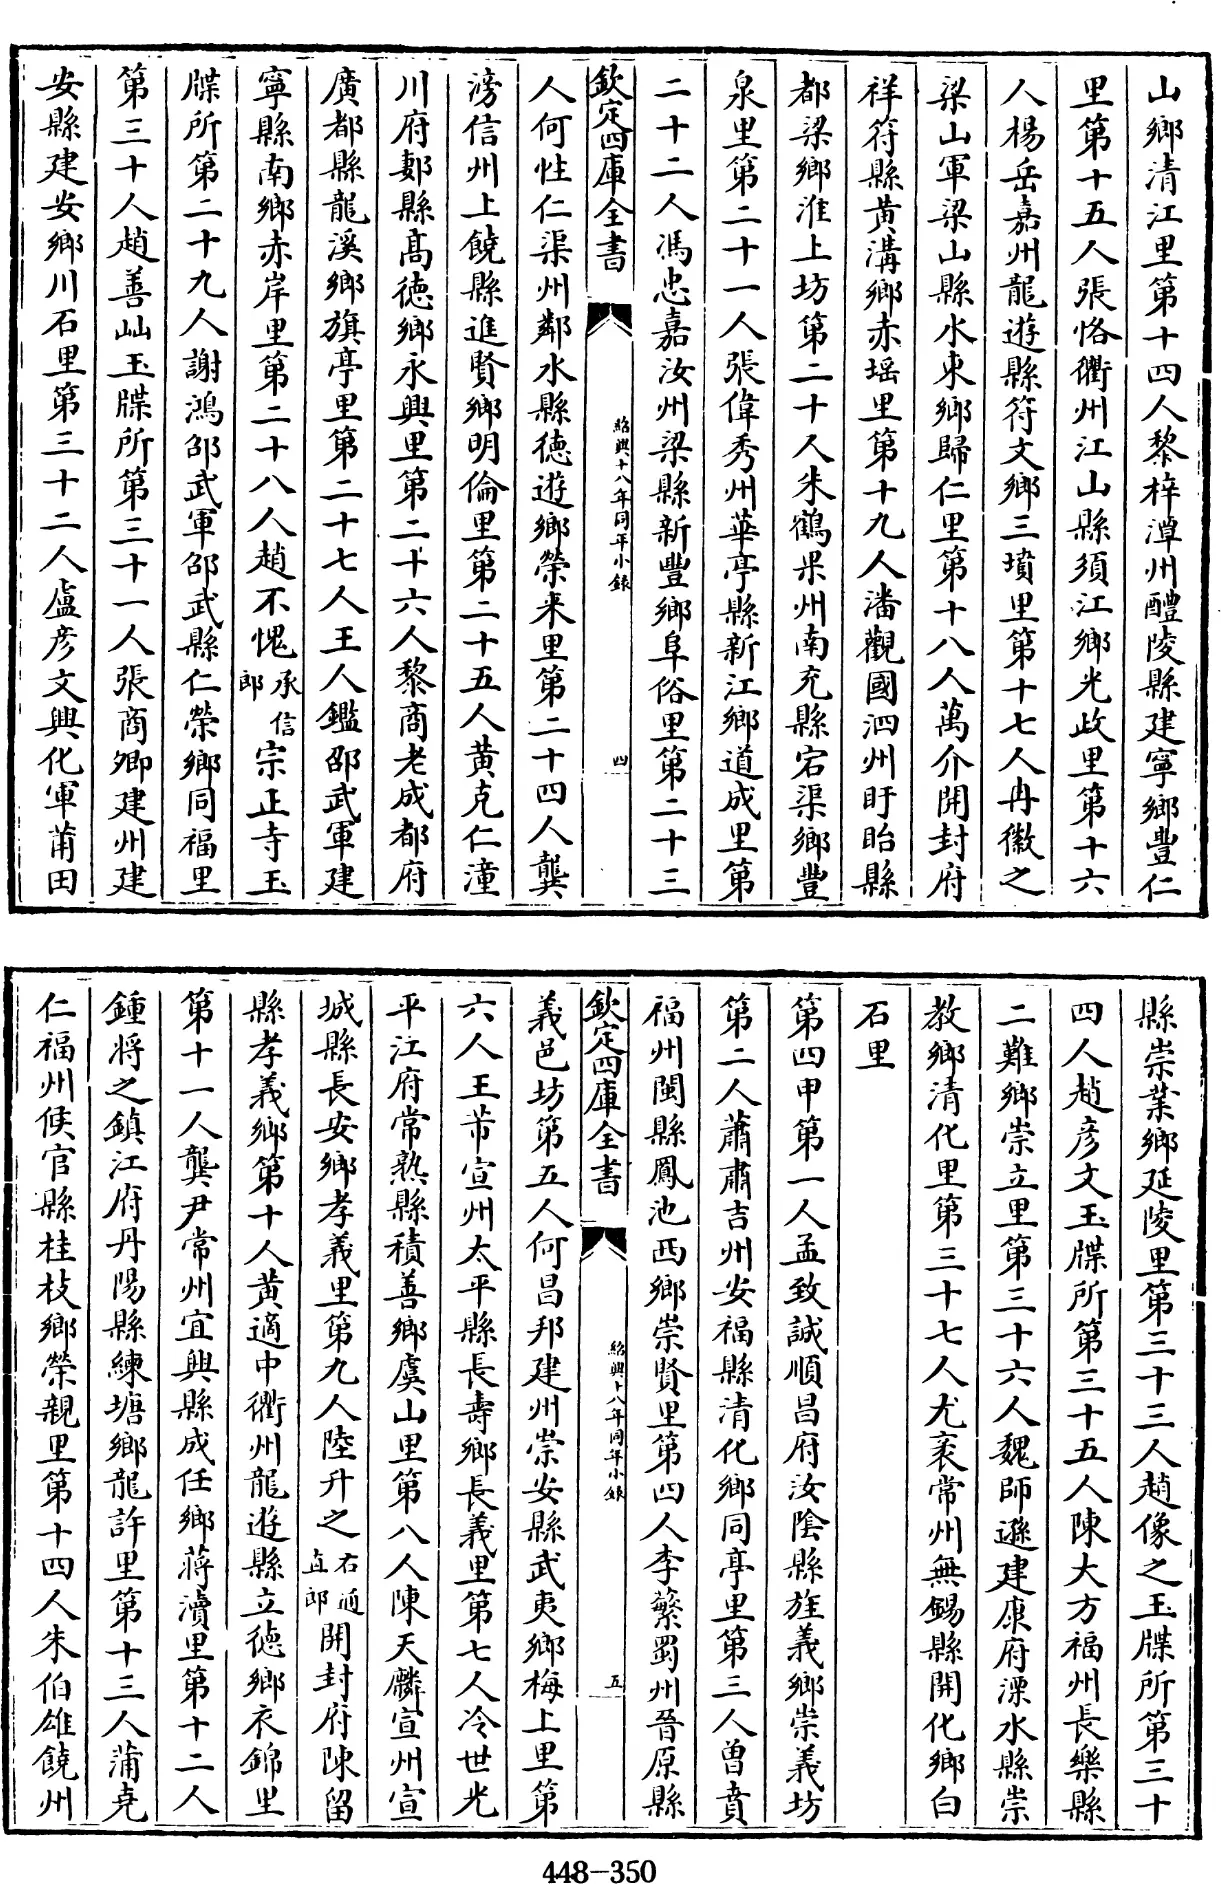 山鄉清江里第十四人黎梓潭州醴陵縣建寧鄉豐仁
里第十五人張恪衢州江山縣須江鄉光政里第十六
人楊岳嘉州龍遊縣符文鄉三墳里第十七人冉徽之
梁山軍梁山縣水東鄉歸仁里第十八人萬介開封府
祥符縣黃溝鄉赤堈里第十九人潘觀國泗州盱眙縣
都梁鄉淮上坊第二十人朱鶴果州南充縣宕渠鄉豐
泉里第二十一人張偉秀州華亭縣新江鄉道成里第
二十二人馮忠嘉汝州梁縣新豐鄉阜俗里第二十三
欽定四庫全書
紹興十八年同年小錄
四
人何性仁渠州鄰水縣德遊鄉榮來里第二十四人龔
滂信州上饒縣進賢鄉明倫里第二十五人黃克仁潼
川府郪縣高德鄉永興里第二十六人黎商老成都府
廣都縣龍溪鄉旗亭里第二十七人王人鑑邵武軍建
寧縣南鄉赤岸里第二十八人趙不愧承信郎宗正寺玉
牒所第二十九人謝鴻邵武軍邵武縣仁榮鄉同福里
第三十人趙善𡵆玉牒所第三十一人張商卿建州建
安縣建安鄉川石里第三十二人盧彦文興化軍莆田
縣崇業鄉延陵里第三十三人趙像之玉牒所第三十
四人趙彦文玉牒所第三十五人陳大方福州長樂縣
二難鄉崇立里第三十六人魏師遜建康府溧水縣崇
教鄉清化里第三十七人尤袤常州無錫縣開化鄉白
石里
第四甲第一人孟致誠順昌府汝陰縣旌義鄉崇義坊
第二人蕭肅吉州安福縣清化鄉同亭里第三人曽賁
福州閩縣鳳池西鄉崇賢里第四人李蘩蜀州晉原縣
欽定四庫全書
紹興十八年同年小錄
五
義邑坊第五人何昌邦建州崇安縣武夷鄉梅上里第
六人王芾宣州太平縣長壽鄉長義里第七人冷世光
平江府常熟縣積善鄉虞山里第八人陳天麟宣州宣
城縣長安鄉孝義里第九人陸升之右通直郎開封府陳留
縣孝義鄉第十人黃適中衢州龍遊縣立德鄉衣錦里
第十一人龔尹常州宜興縣成任鄉蔣瀆里第十二人
鍾將之鎮江府丹陽縣練塘鄉龍許里第十三人蒲堯
仁福州侯官縣桂枝鄉榮親里第十四人朱伯雄饒州
448-350